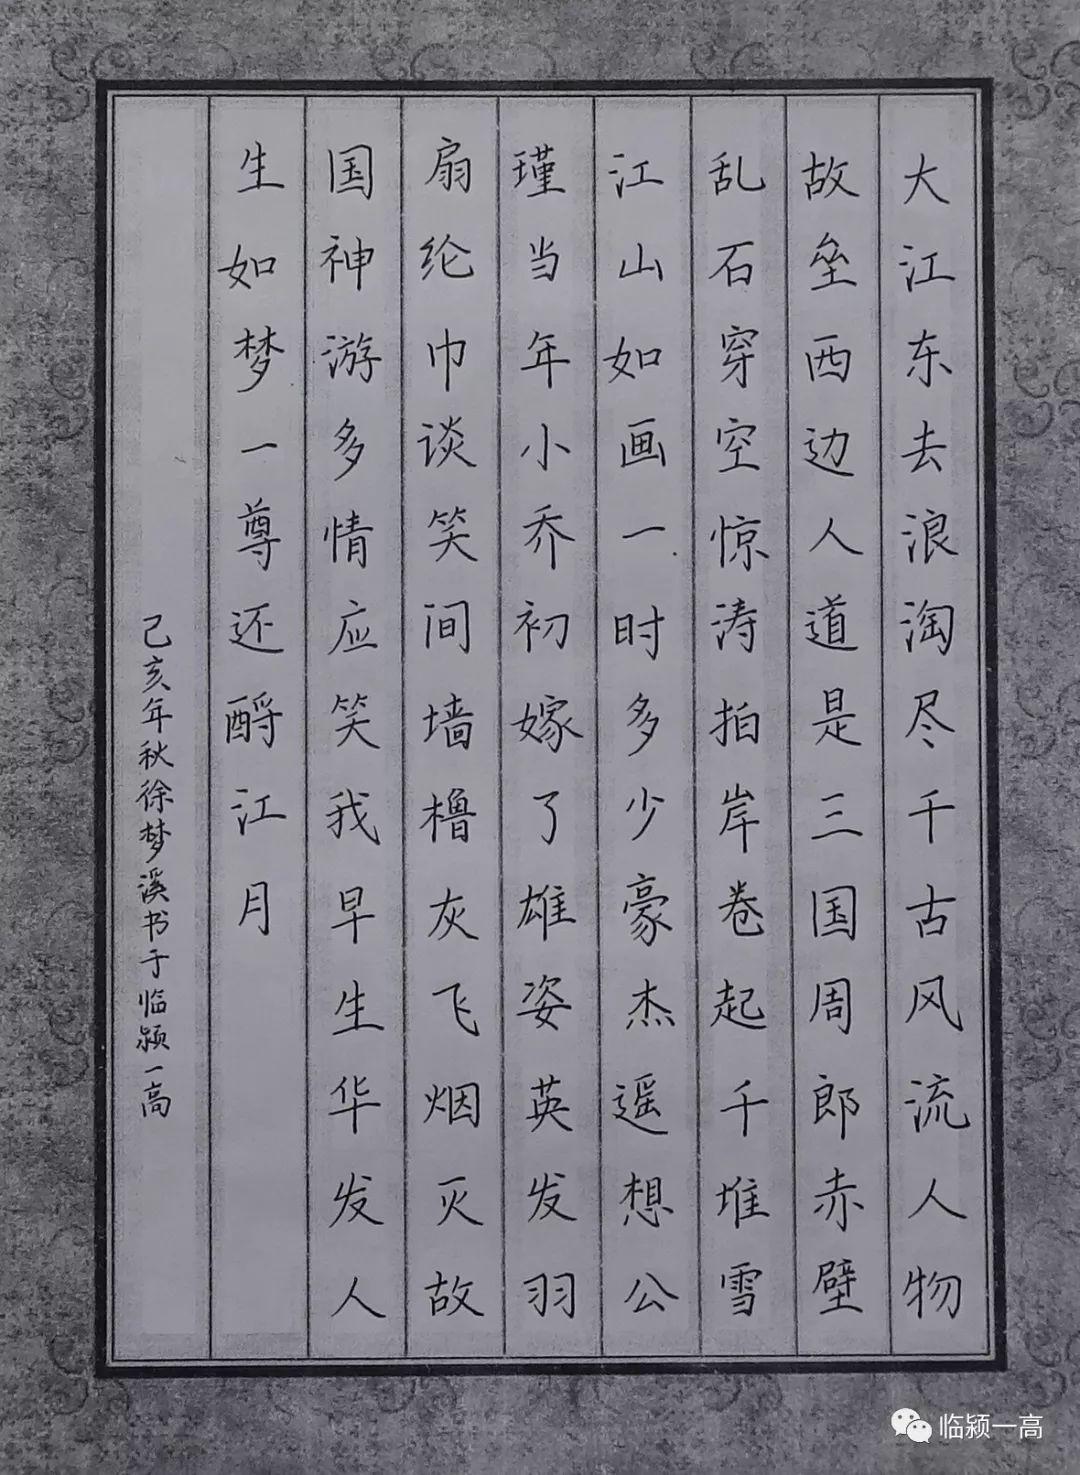 大江东去浪淘尽千古风流人物
故垒西边人道是三国周郎赤壁
乱石穿空惊涛拍岸卷起千堆雪
江山如画一时多少豪杰遥想公
瑾当年小乔初嫁了雄姿英发羽
扇纶巾谈笑间墙橹灰飞烟灭故
国神游多情应笑我早生华发人
生如梦一尊还酹江月
己亥年秋徐梦溪书于临颍一高
临颍一高